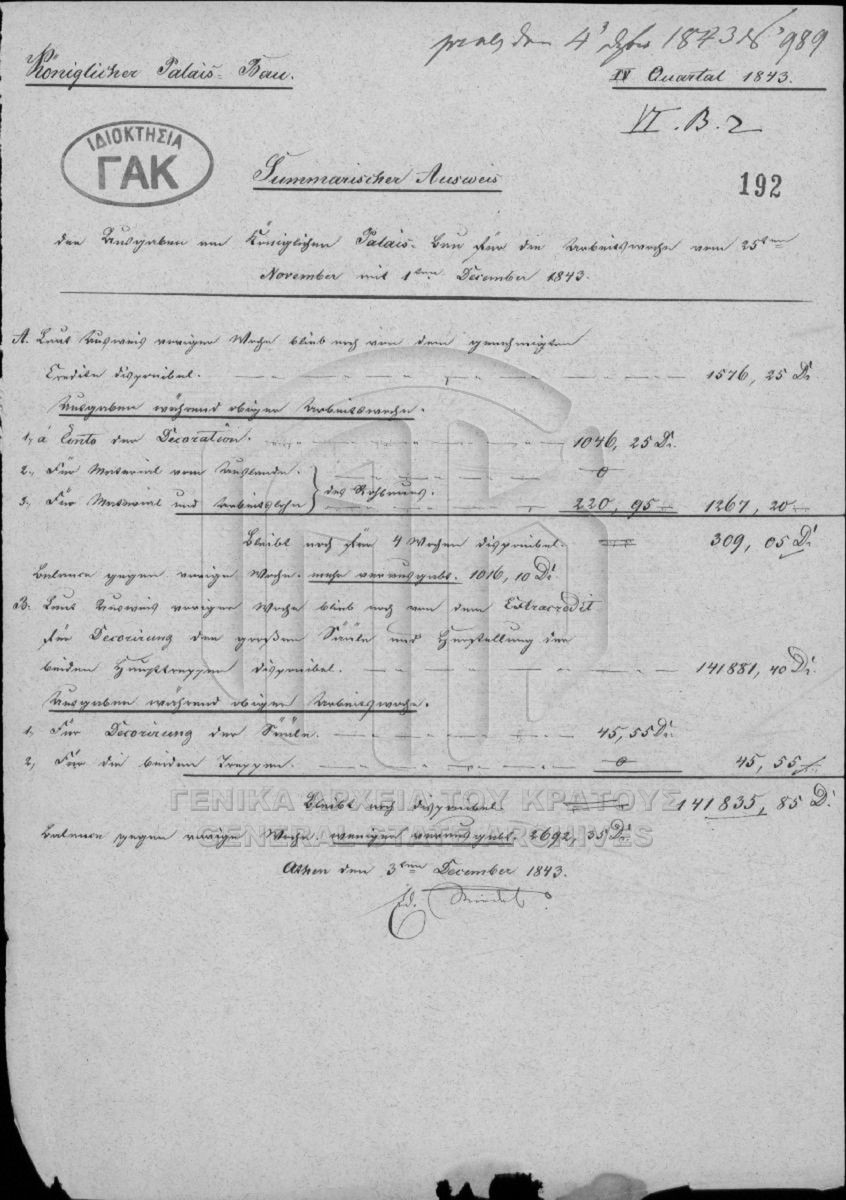 praes den 4' Dezbr 1843 № 989
Königlicher Palais-Bau.
IV Quartal 1843.
VI. B. 2
ΙΔΙΟΚΤΗΣΙΑ
ΓΑΚ
Summarischer Ausweis
192
der Ausgaben am Königlichen Palais-Bau für die Arbeitswoche vom 25ten
November mit 1ten December 1843.
A. Laut Ausweis voriger Woche blieb noch von dem genehmigten
Credite disponibel. 1576, 25 Dr.
Ausgaben während obiger Arbeitswoche.
1, à Conto der Decoration. 1046, 25 Dr.
2, Für Material vom Auslande. 0
des Rohbaues.
3, Für Material und Arbeitslohn 220, 95 1267, 20
Bleibt noch für 4 Wochen disponibel. 309, 05 Dr
Balance gegen vorige Woche. mehr verausgabt. 1016, 10 Dr
B. Laut Ausweis voriger Woche blieb noch von dem Extracredit
für Decorirung der großen Säule und Herstellung der
beiden Haupttreppen disponibel. 141881, 40 Dr.
Ausgaben während obiger Arbeitswoche.
1, Für Decorirung der Säule. 45, 55 Dr.
2, Für die beiden Treppen. 0 45, 55
Bleibt noch disponibel. 141835, 85 D.
Balance gegen vorige Woche. weniger verausgabt. 2692, 35 Dr
Athen den 3ten December 1843.
ΓΕΝΙΚΑ ΑΡΧΕΙΑ ΤΟΥ ΚΡΑΤΟΥΣ
GENERAL STATE ARCHIVES